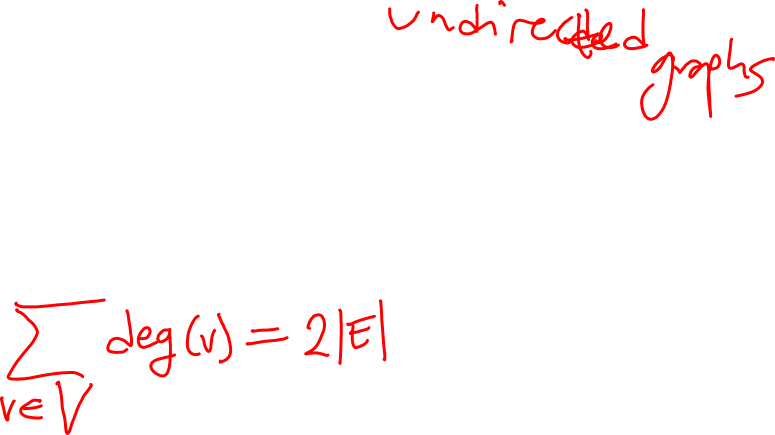 undirected
graphs
∑ deg(v) = 2|E|
v∈V